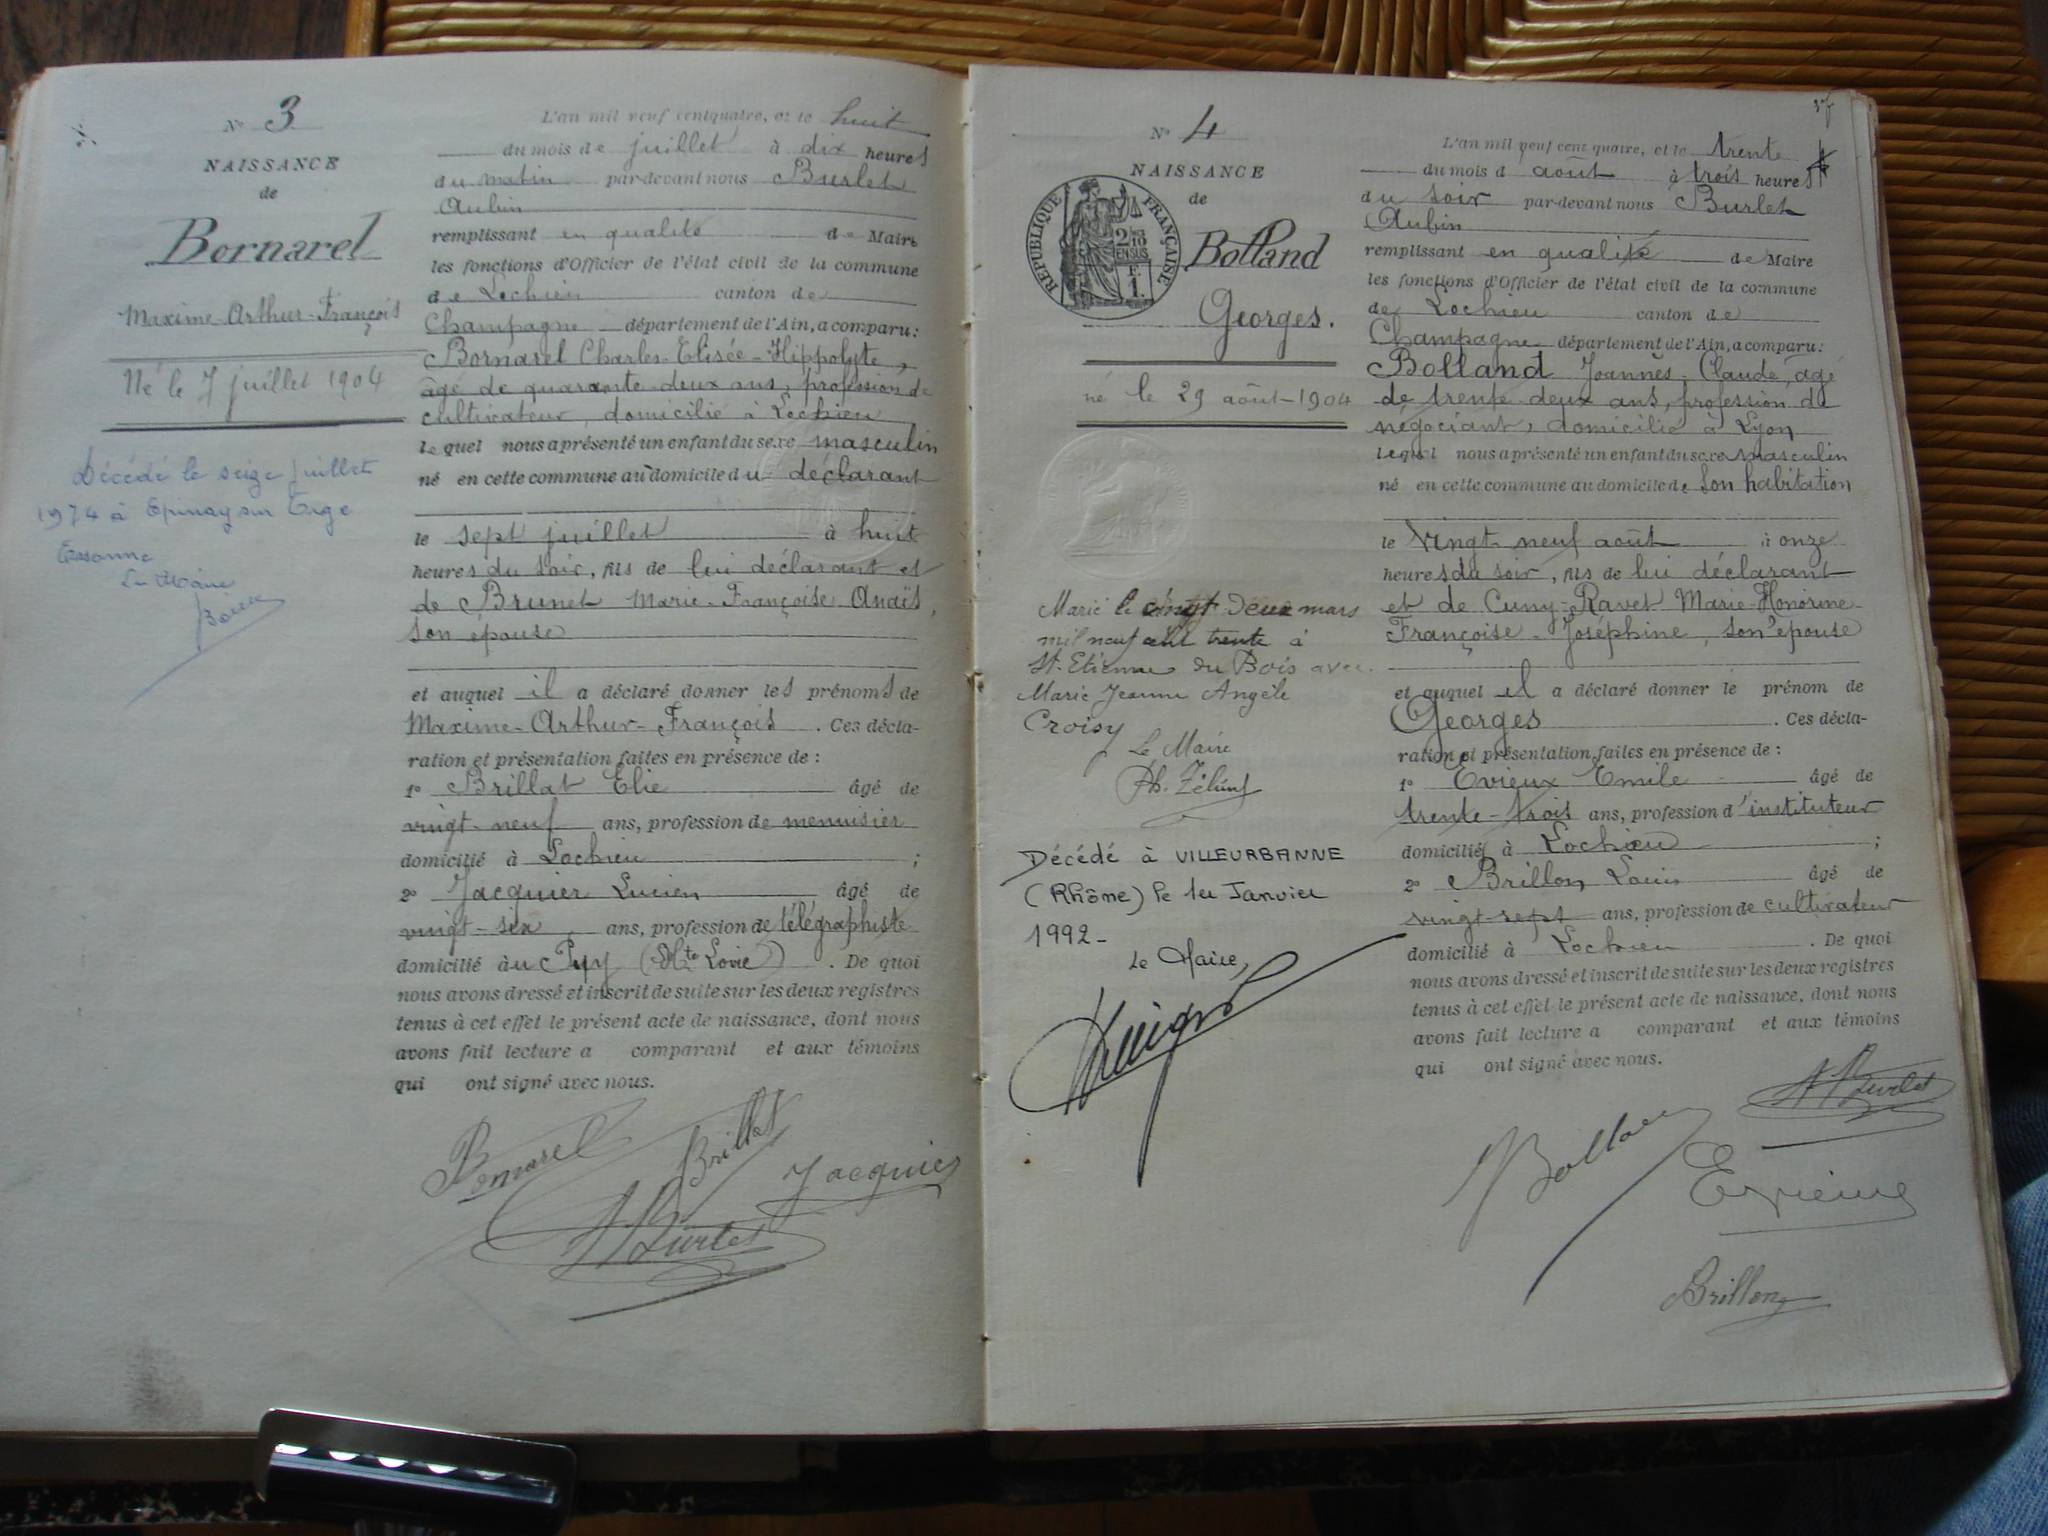 N° 3
NAISSANCE
de
Bornarel
Maxime-Arthur-François
Né le 7 juillet 1904
Décédé le seize juillet
1974 à Epinay sur Orge
Essonne
Le Maire
L'an mil neuf cent quatre, et le huit
du mois de juillet à dix heures
du matin par-devant nous Burlet
Aubin
remplissant en qualité de Maire
les fonctions d'Officier de l'état civil de la commune
de Lochieu canton de
Champagne département de l'Ain, a comparu:
Bornarel Charles-Elisée-Hippolyte,
âgé de quarante-deux ans, profession de
cultivateur, domicilié à Lochieu
lequel nous a présenté un enfant du sexe masculin
né en cette commune au domicile du déclarant
le sept juillet à huit
heures du soir, fils de lui déclarant et
de Brunet Marie-Françoise-Anaïs,
son épouse
et auquel il a déclaré donner les prénoms de
Maxime-Arthur-François. Ces décla-
ration et présentation faites en présence de :
1° Brillat Elie âgé de
vingt-neuf ans, profession de menuisier
domicilié à Lochieu ;
2° Jacquier Lucien âgé de
vingt-six ans, profession de télégraphiste
domicilié au Puy (Hte Loire). De quoi
nous avons dressé et inscrit de suite sur les deux registres
tenus à cet effet le présent acte de naissance, dont nous
avons fait lecture a comparant et aux témoins
qui ont signé avec nous.
Bornarel Brillat Jacquier
A Burlet
N° 4
NAISSANCE
de
RÉPUBLIQUE FRANÇAISE
2/10 EN SUS
F. 1.
Bolland
Georges.
né le 29 août-1904
Marié le vingt deux mars
mil neuf cent trente à
St. Etienne du Bois avec
Marie Jeanne Angèle
Croisy
Le Maire
Décédé à VILLEURBANNE
(Rhône) le 1er Janvier
1992-
Le Maire,
37
L'an mil neuf cent quatre, et le trente
du mois d août à trois heures
du soir par-devant nous Burlet
Aubin
remplissant en qualité de Maire
les fonctions d'Officier de l'état civil de la commune
de Lochieu canton de
Champagne département de l'Ain, a comparu:
Bolland Joannès-Claude, âgé
de trente-deux ans, profession de
négociant, domicilié à Lyon
lequel nous a présenté un enfant du sexe masculin
né en cette commune au domicile de son habitation
le vingt-neuf août à onze
heures du soir, fils de lui déclarant
et de Cuny-Ravet Marie-Honorine-
Françoise-Joséphine, son épouse
et auquel il a déclaré donner le prénom de
Georges. Ces décla-
ration et présentation faites en présence de :
1° Evieux Emile âgé de
trente-trois ans, profession d'instituteur
domicilié à Lochieu ;
2° Brillon Louis âgé de
vingt-sept ans, profession de cultivateur
domicilié à Lochieu. De quoi
nous avons dressé et inscrit de suite sur les deux registres
tenus à cet effet le présent acte de naissance, dont nous
avons fait lecture a comparant et aux témoins
qui ont signé avec nous.
A Burlet
Bolland
Evieux
Brillon